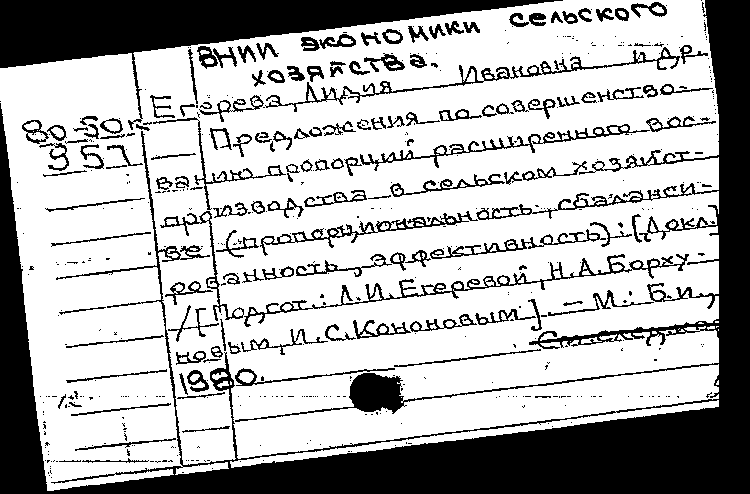 ВНИИ экономики сельского
хозяйства.
Егерева, Лидия Ивановна и др.
80-50к
957
Предложения по совершенство-
ванию пропорций расширенного вос-
производства в сельском хозяйст-
ве (пропорциональность, сбаланси-
рованность, эффективность): [Докл.]
/[Подгот.: Л.И.Егеревой, Н.А.Борху-
новым, И.С.Кононовым]. - М.: Б.и.,
1980.
См.след.кар
12